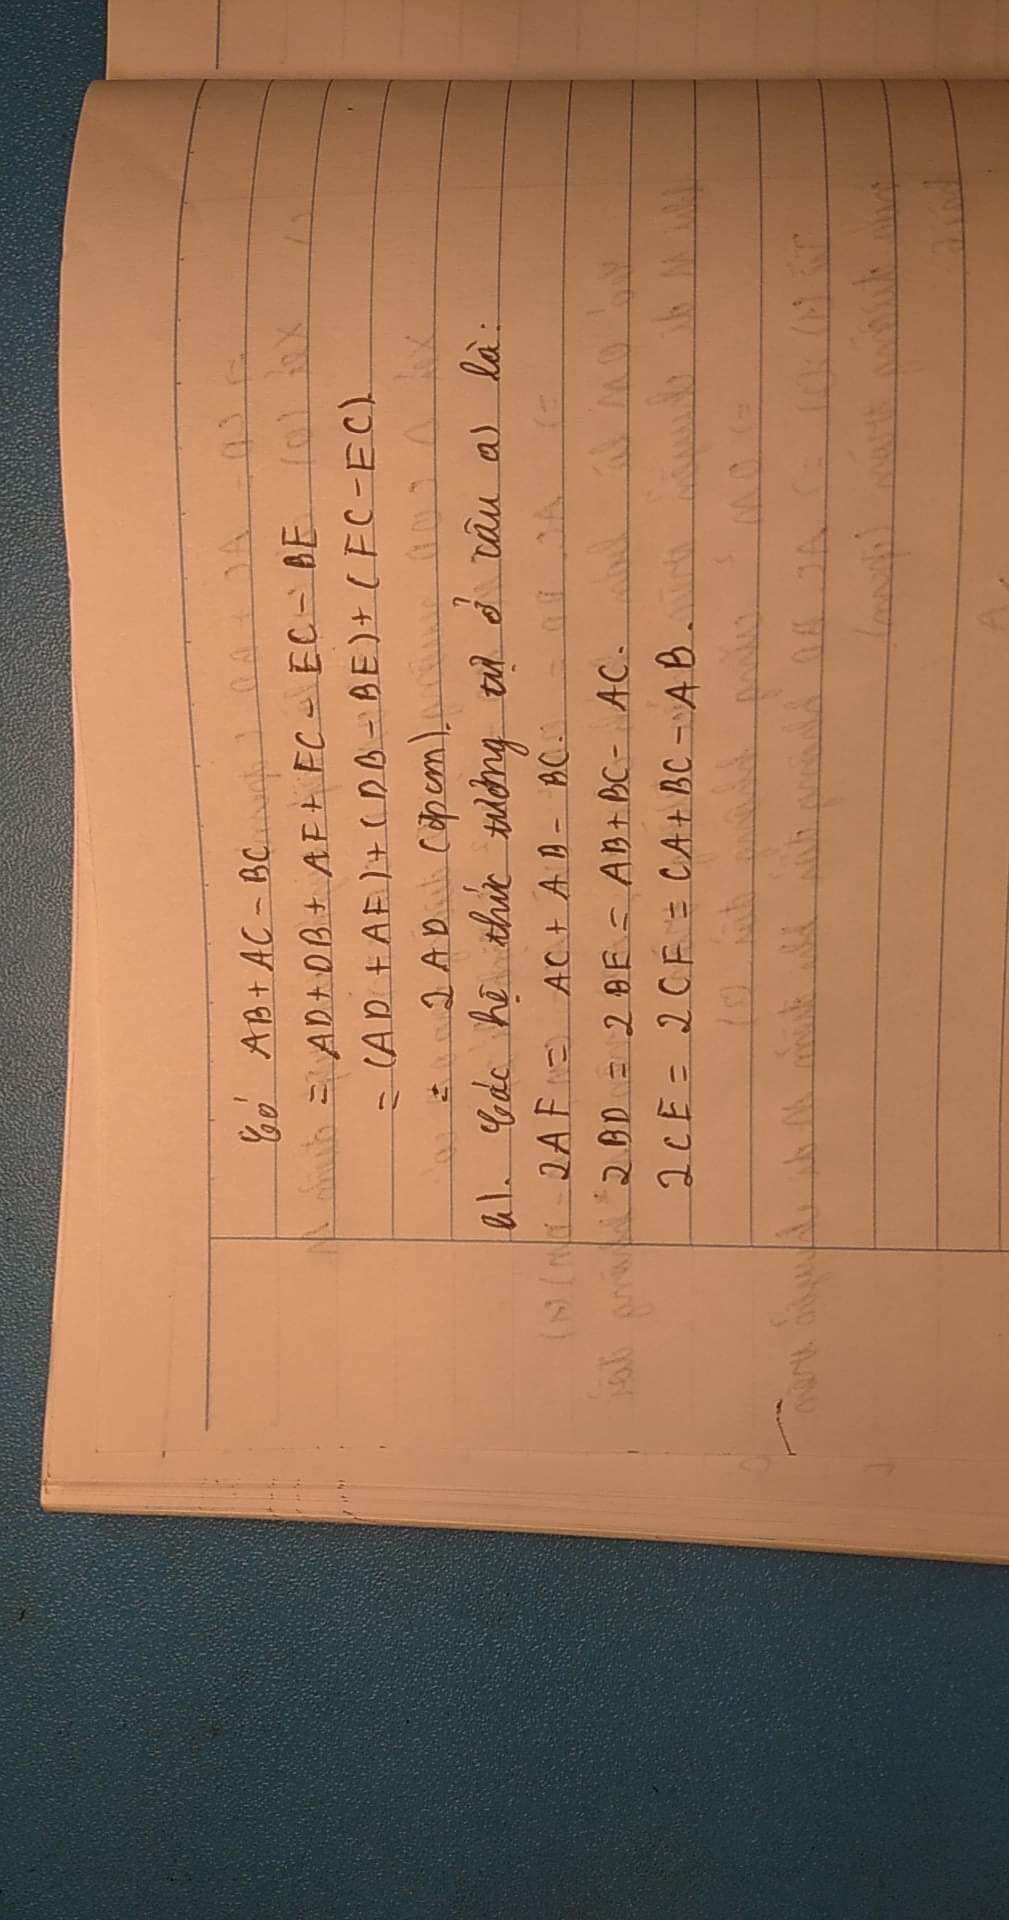 Có AB + AC - BC
= AD + DB + AF + FC - EC - BE
= (AD + AF) + (DB - BE) + (FC - EC)
= 2AD (đpcm).
b). Các hệ thức tương tự ở câu a) là:
2AF = AC + AB - BC.
2BD = 2BE = AB + BC - AC.
2CE = 2CF = CA + BC - AB.